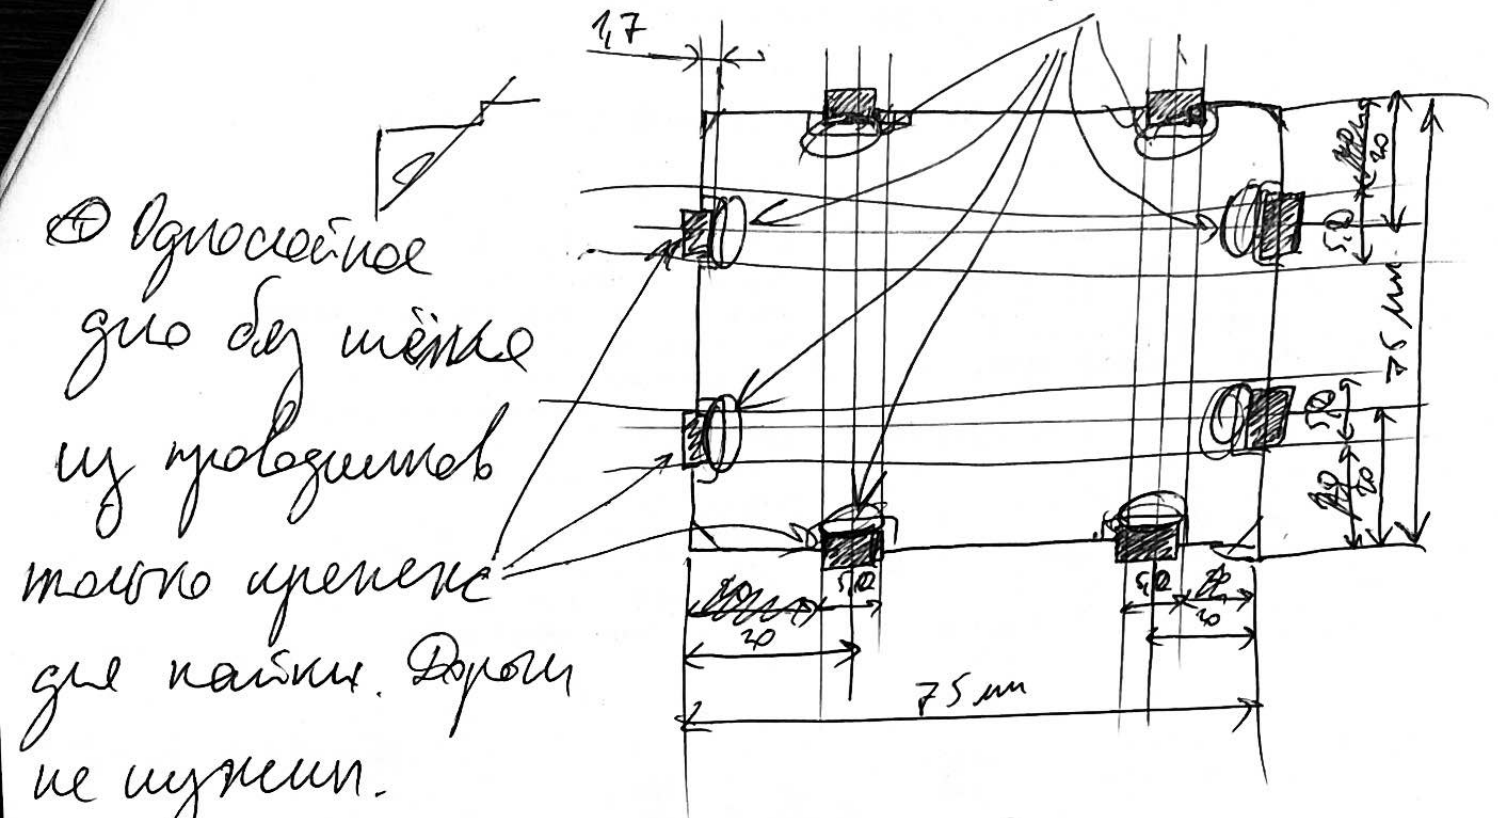 1,7
① Однослойное
дно без шёлка
из проводников
только крепеж
для пайки. Дороги
не нужны.
20
5,0
75 мм
5,0
20
5,0
5,0
20
20
75 мм